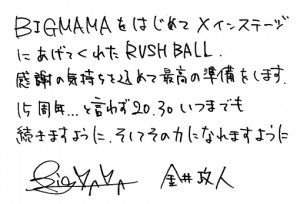 BIGMAMAをはじめてメインステージ
にあげてくれたRUSH BALL.
感謝の気持ちを込めて最高の準備をします.
15周年…と言わず20.30いつまでも
続きますように.そしてその力になれますように
BigMaMa 金井政人